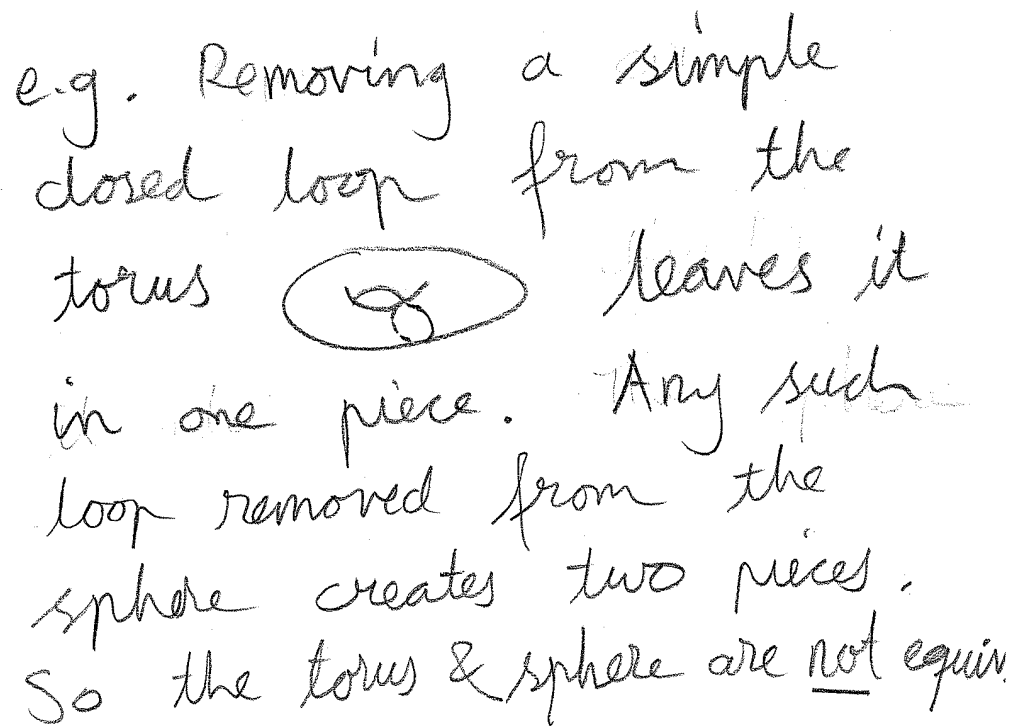 e.g. Removing a simple
closed loop from the
torus leaves it
in one piece. Any such
loop removed from the
sphere creates two pieces.
So the torus & sphere are not equiv.